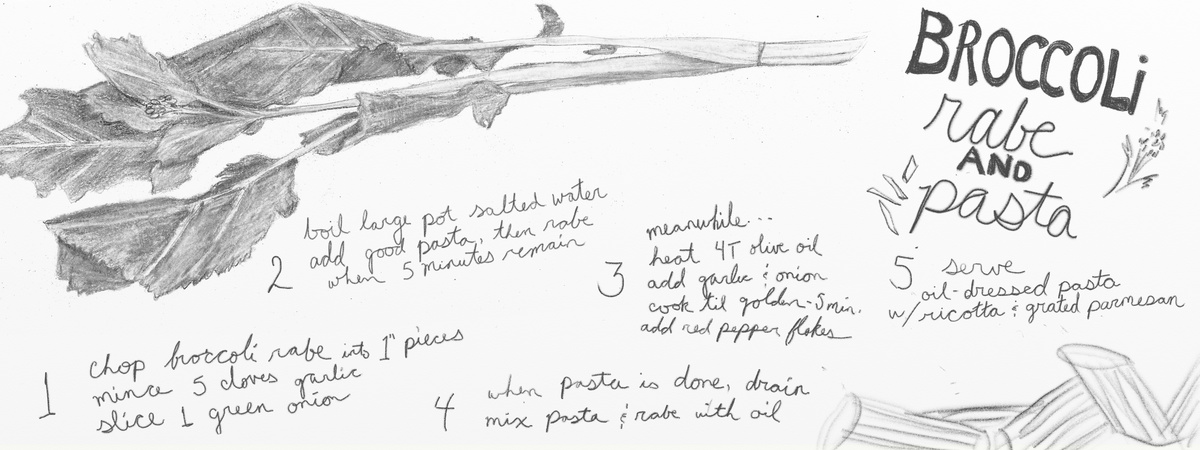 BROCCOLi
rabe
AND
pasta
1
chop broccoli rabe into 1" pieces
mince 5 cloves garlic
slice 1 green onion
2
boil large pot salted water
add good pasta, then rabe
when 5 minutes remain
3
meanwhile...
heat 4T olive oil
add garlic & onion
cook til golden-5min.
add red pepper flakes
4
when pasta is done, drain
mix pasta & rabe with oil
5
serve
oil-dressed pasta
w/ricotta & grated parmesan